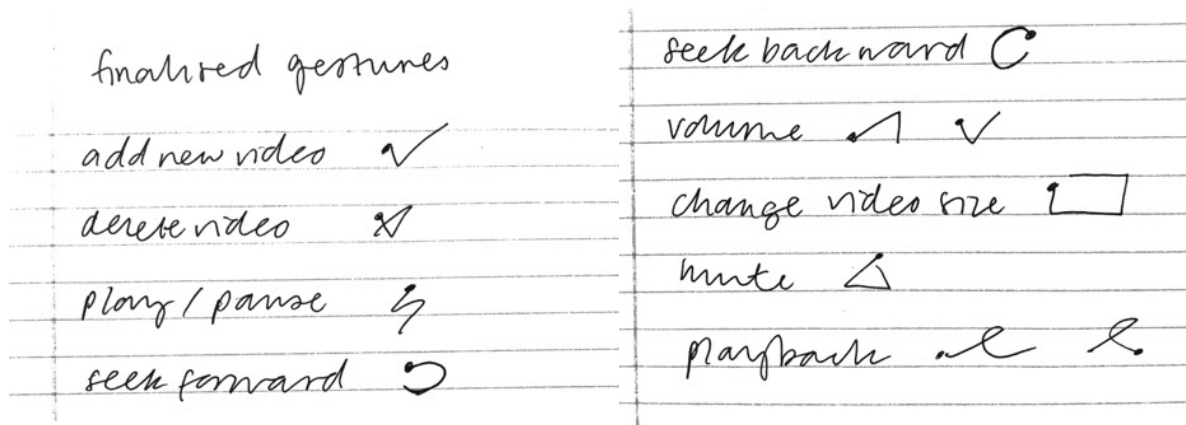 finalised gestures
add new video
delete video
play / pause
seek forward
seek backward
volume
change video size
mute
playback